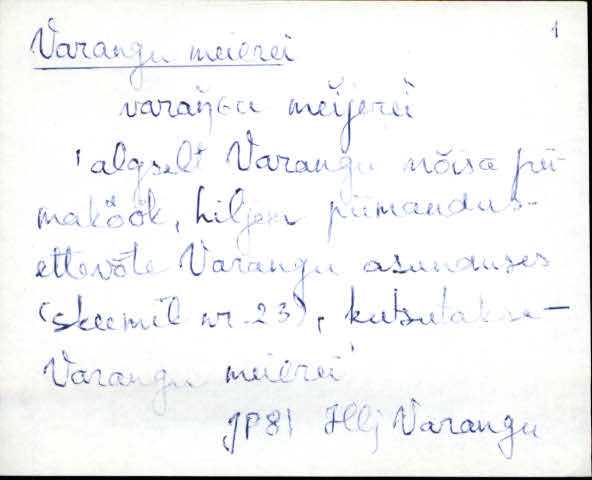 1
Varangu meierei
varaŋɢu meijerei
'algselt Varangu mõisa pii-
maköök, hiljem piimandus-
ettevõte Varangu asunduses
(skeemil nr. 23), kutsutakse –
Varangu meierei'
JP81 Hlj Varangu